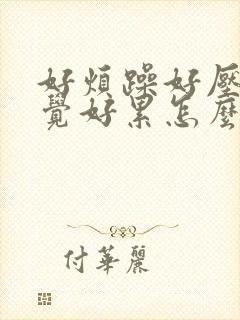 好煩躁好壓
覺好累怎麼
付華麗